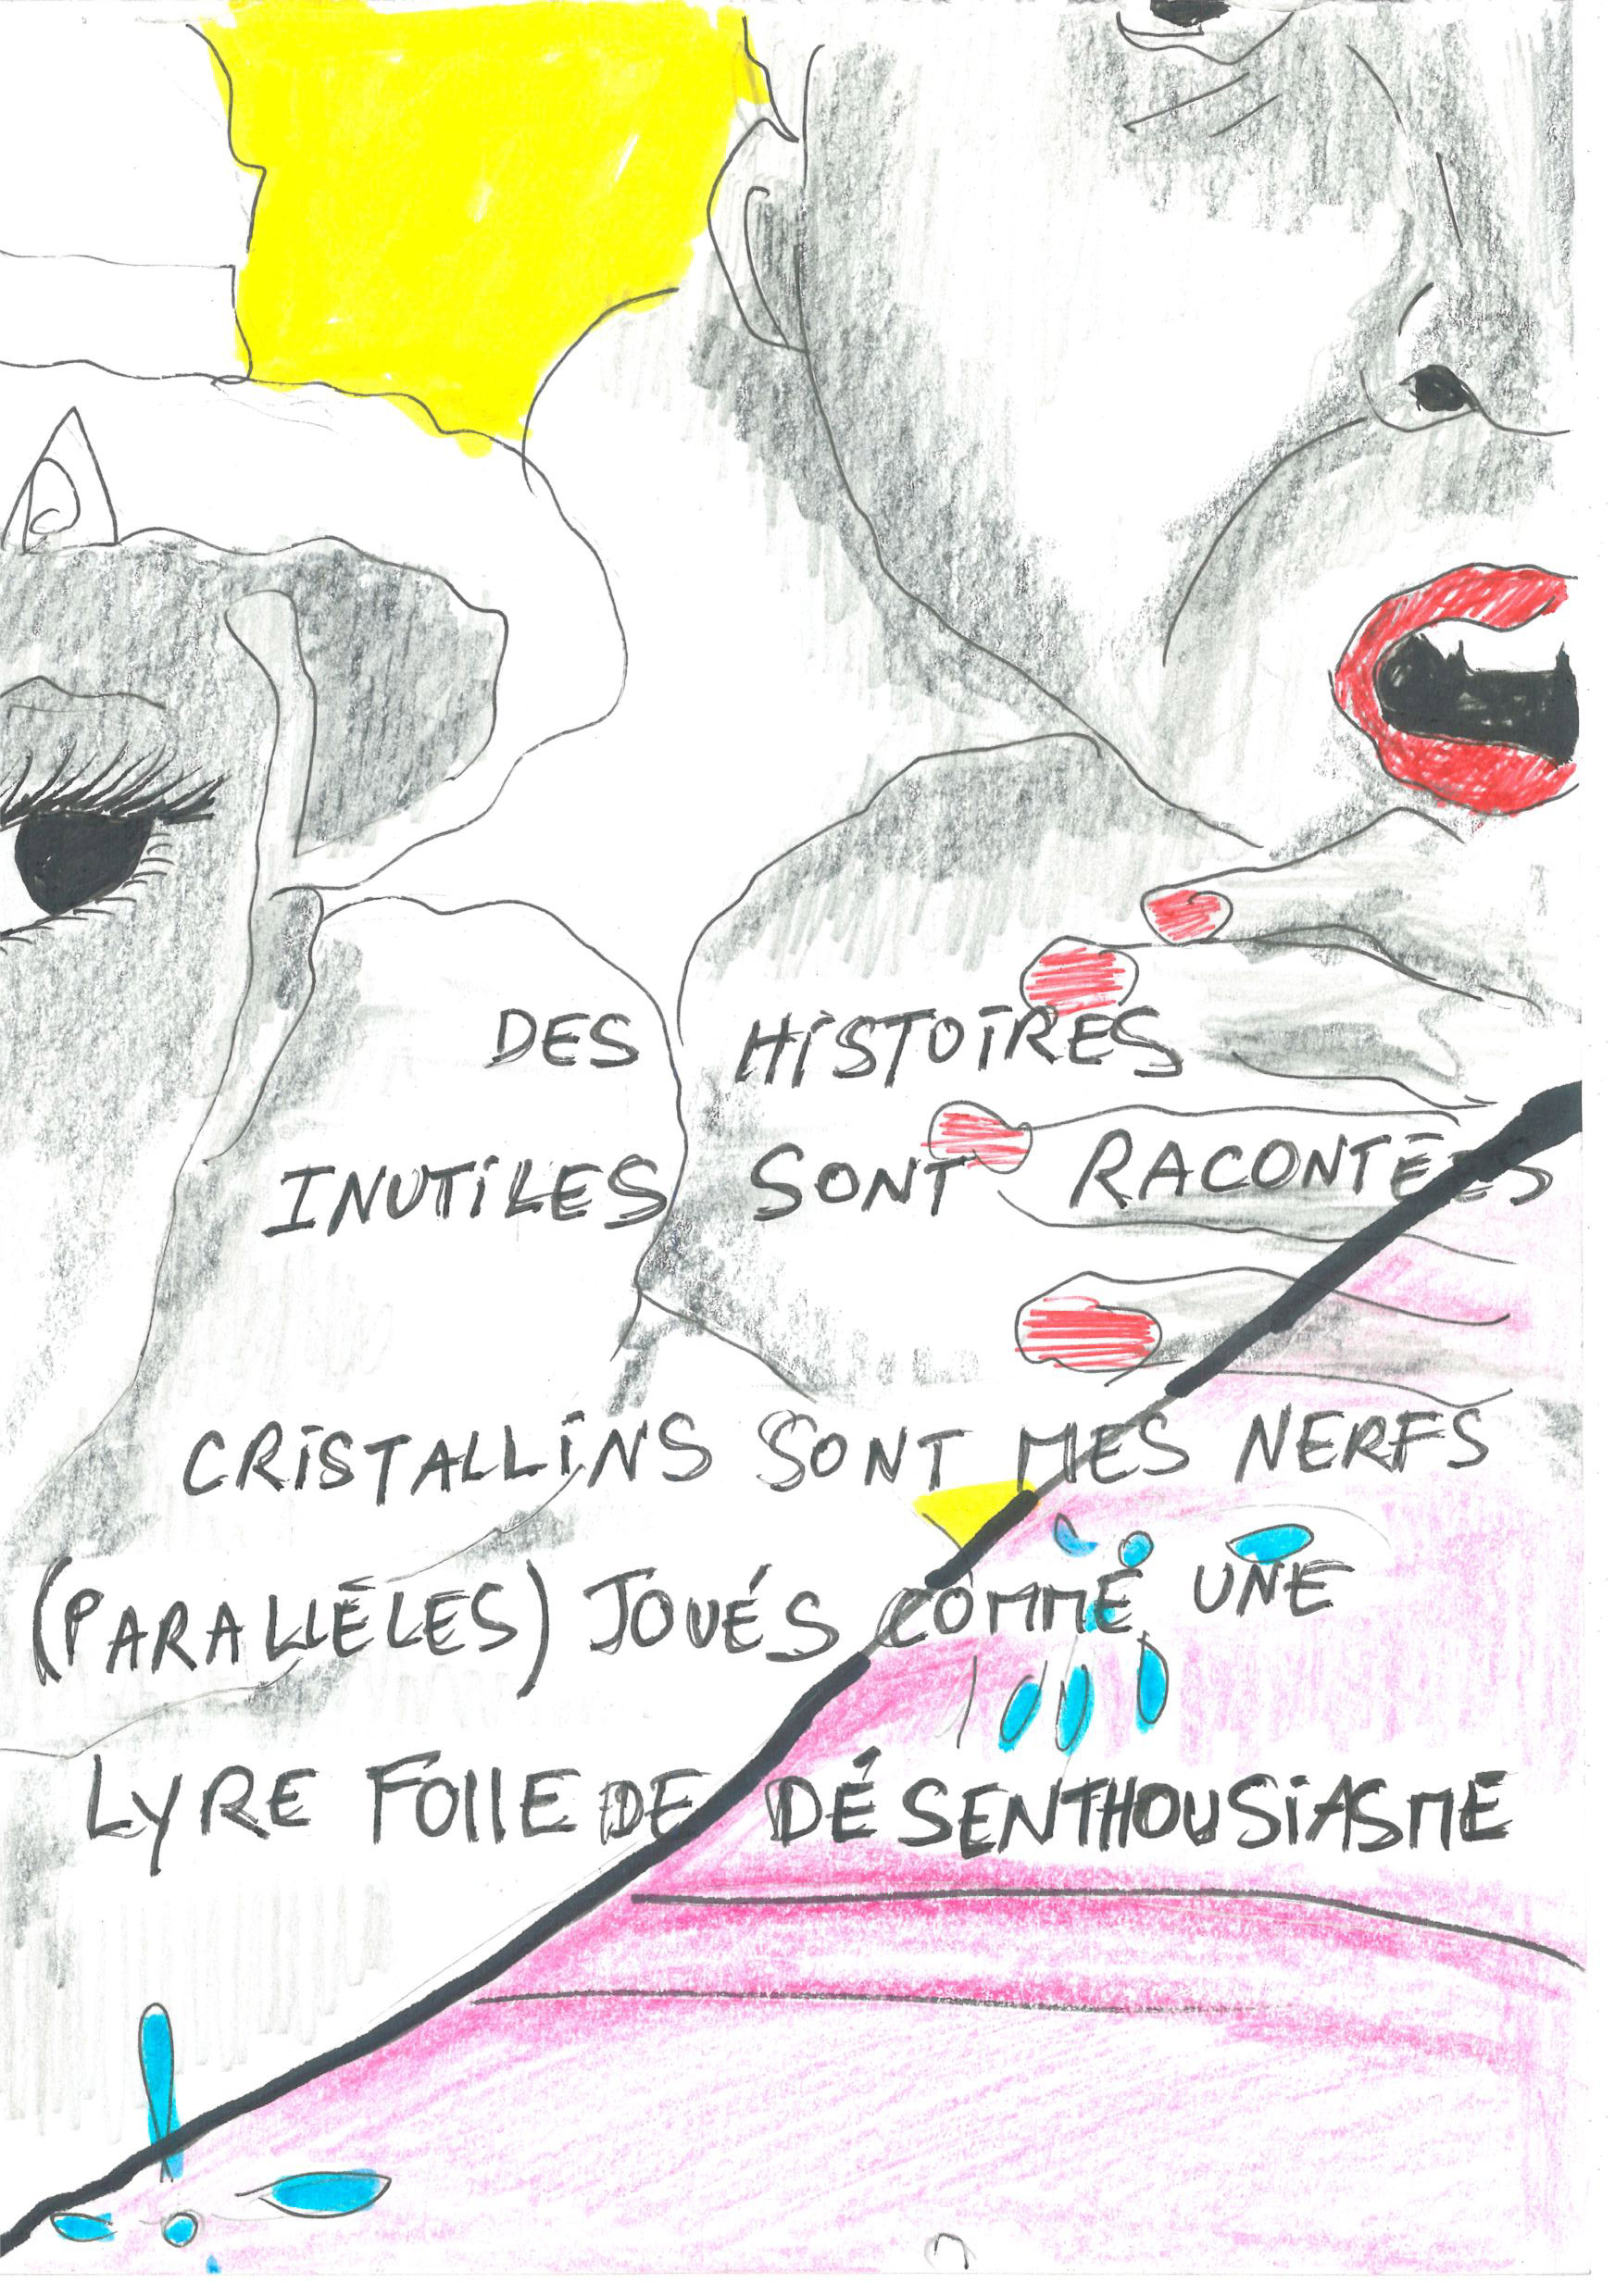 DES HISTOIRES
INUTILES SONT RACONTÉES
CRISTALLINS SONT MES NERFS
(PARALLÈLES) JOUÉS COMME UNE
LYRE FOLLE DE DÉSENTHOUSIASME